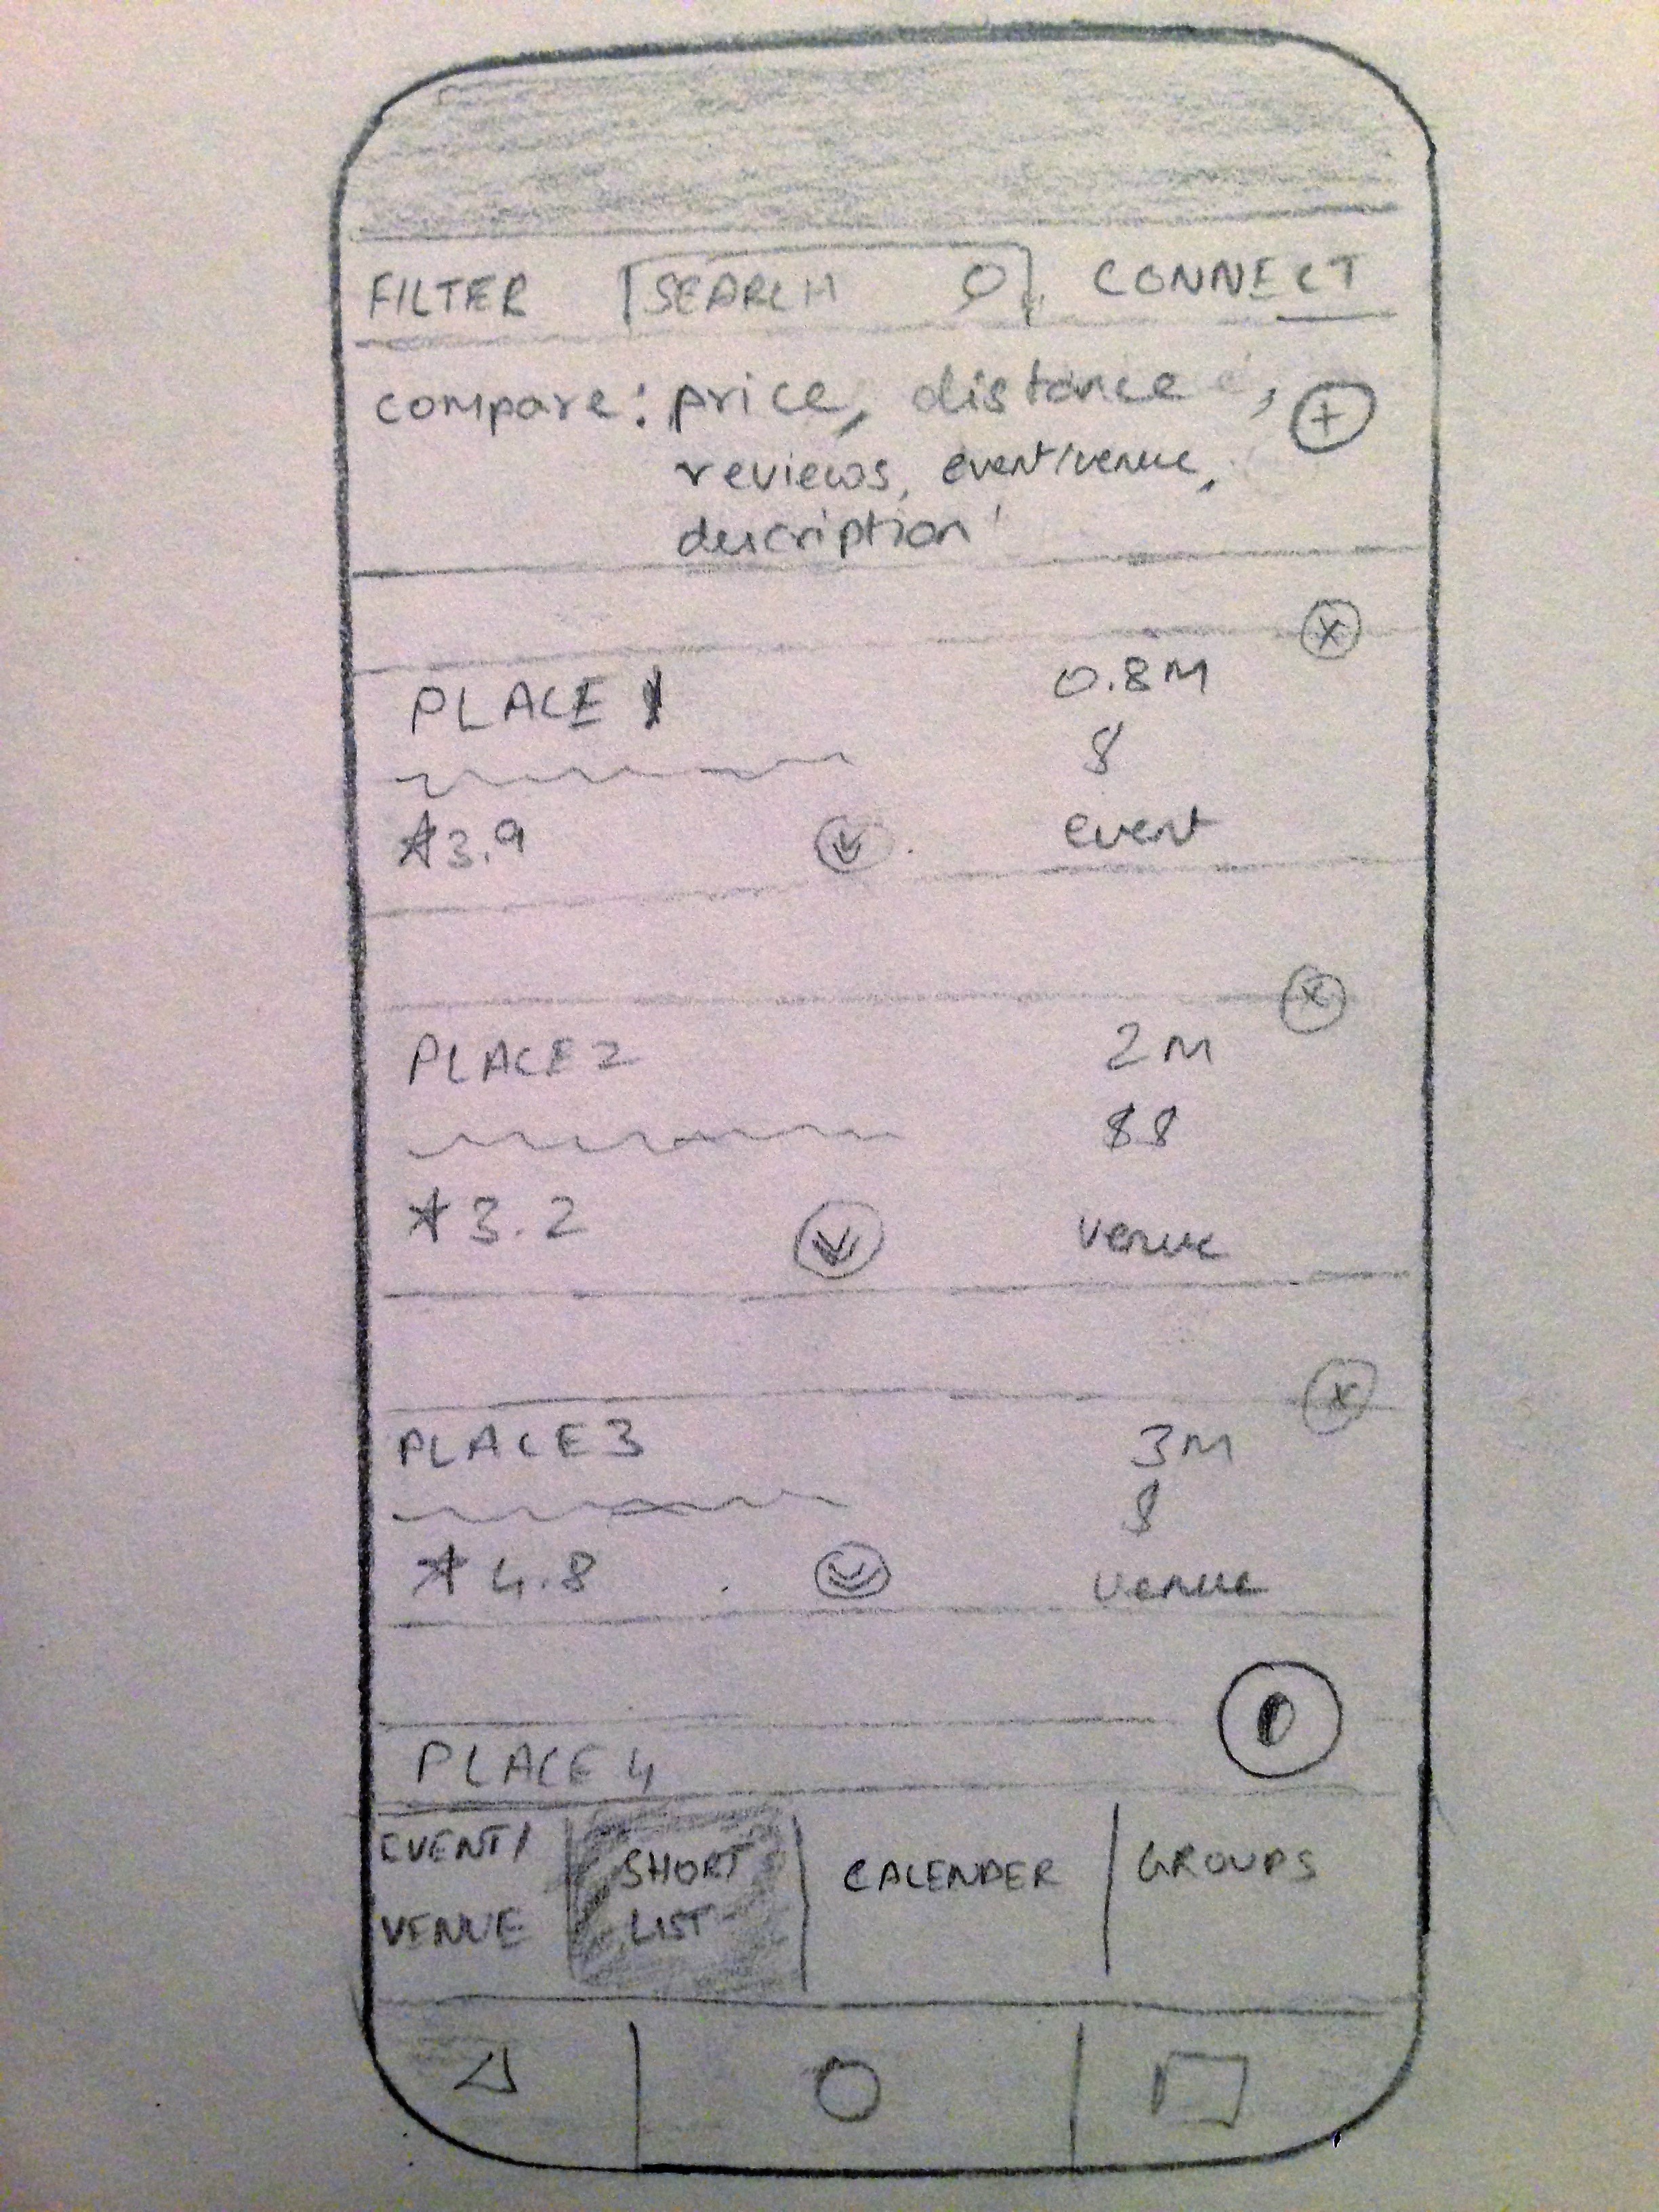 FILTER SEARCH CONNECT
compare: price, distance,
reviews, event/venue,
description
PLACE 1 0.8M
$
★3.9 event
PLACE 2 2M
$$
★3.2 venue
PLACE 3 3M
$
★4.8 venue
PLACE 4
EVENT/ SHORT CALENDER GROUPS
VENUE LIST